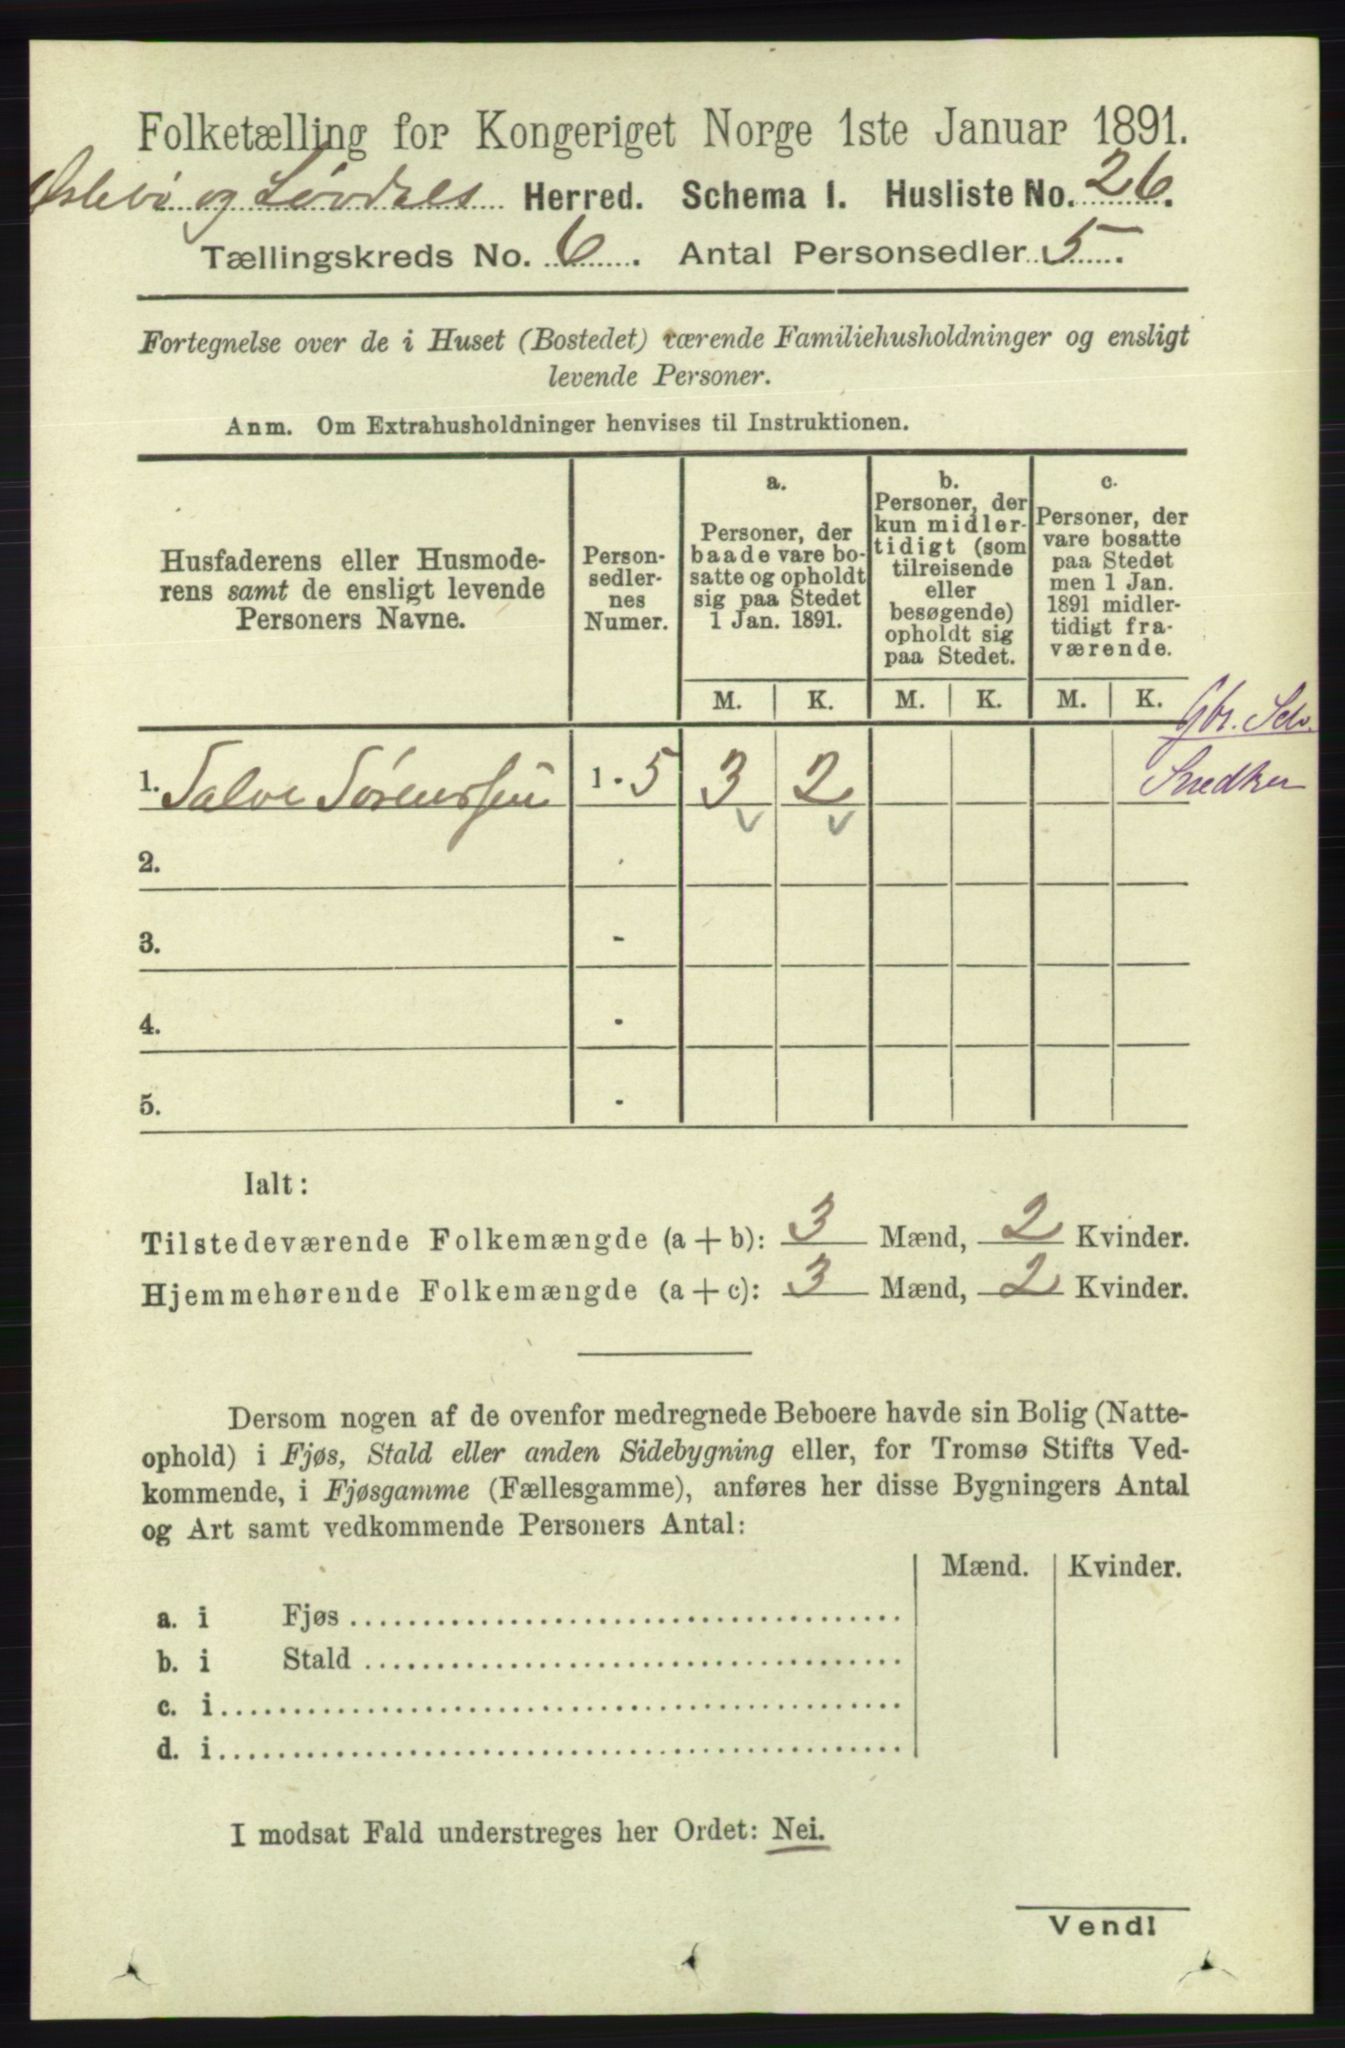 Folketælling for Kongeriget Norge 1ste Januar 1891.
Øslebø og Løvdals Herred. Schema I. Husliste No. 26.
Tællingskreds No. 6. Antal Personsedler 5.
Fortegnelse over de i Huset (Bostedet) værende Familiehusholdninger og ensligt
levende Personer.
Anm. Om Extrahusholdninger henvises til Instruktionen.
Husfaderens eller Husmode-
rens samt de ensligt levende
Personers Navne.
Person-
sedler-
nes
Numer.
a.
Personer, der
baade vare bo-
satte og opholdt
sig paa Stedet
1 Jan. 1891.
b.
Personer, der
kun midler-
tidigt (som
tilreisende
eller
besøgende)
opholdt sig
paa Stedet.
c.
Personer, der
vare bosatte
paa Stedet
men 1 Jan.
1891 midler-
tidigt fra-
værende.
M. K. M. K. M. K.
Gbr. Selv.
1. Salve Sørenssen 1 - 5 3 2 Snedker
2.
3. -
4. -
5. -
Ialt:
Tilstedeværende Folkemængde (a + b): 3 Mænd, 2 Kvinder.
Hjemmehørende Folkemængde (a + c): 3 Mænd, 2 Kvinder.
Dersom nogen af de ovenfor medregnede Beboere havde sin Bolig (Natte-
ophold) i Fjøs, Stald eller anden Sidebygning eller, for Tromsø Stifts Ved-
kommende, i Fjøsgamme (Fællesgamme), anføres her disse Bygningers Antal
og Art samt vedkommende Personers Antal:
Mænd. Kvinder.
a. i Fjøs
b. i Stald
c. i
d. i
I modsat Fald understreges her Ordet: Nei.
Vend!